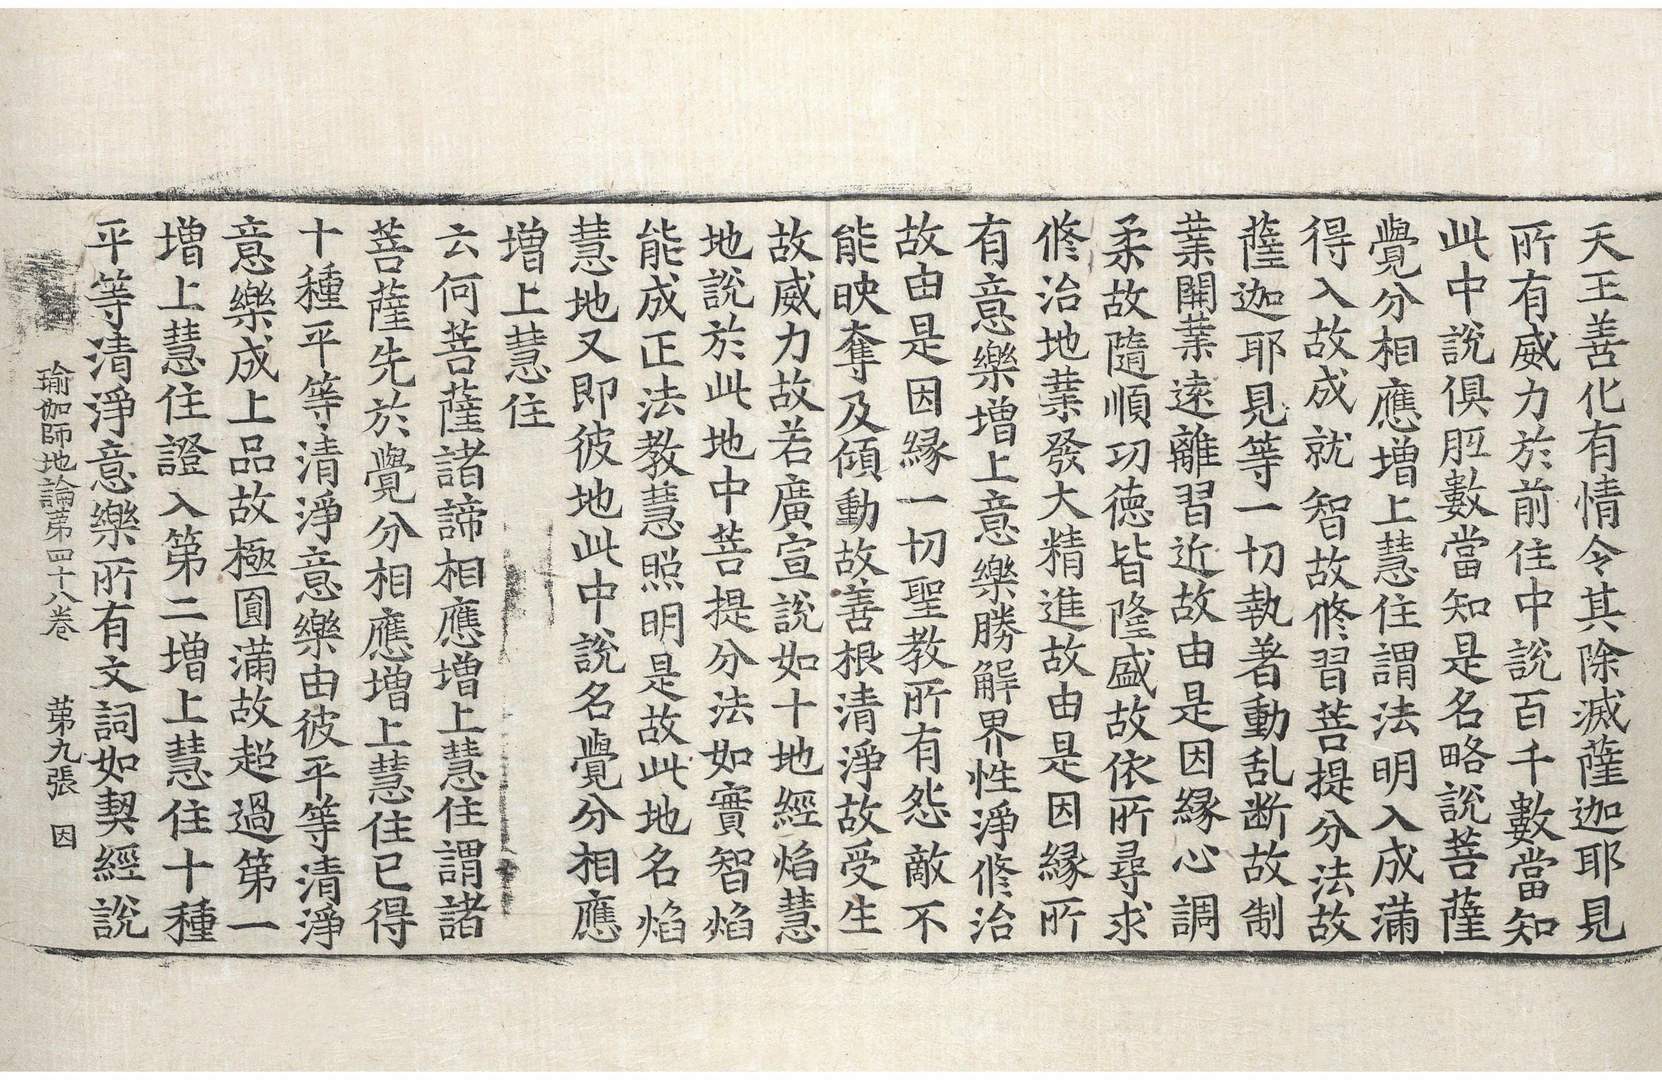 天王善化有情令其除滅薩迦耶見
所有威力於前住中說百千數當知
此中說俱胝數當知是名略說菩薩
覺分相應增上慧住謂法明入成滿
得入故成就智故修習菩提分法故
薩迦耶見等一切執著動乱断故制
業開業遠離習近故由是因緣心調
柔故隨順功德皆隆盛故依所尋求
修治地業發大精進故由是因緣所
有意樂增上意樂勝解界性淨修治
故由是因緣一切聖教所有怨敵不
能映奪及傾動故善根清淨故受生
故威力故若廣宣說如十地經焰慧
地說於此地中菩提分法如實智焰
能成正法教慧照明是故此地名焰
慧地又即彼地此中說名覺分相應
增上慧住
云何菩薩諸諦相應增上慧住謂諸
菩薩先於覺分相應增上慧住已得
十種平等清淨意樂由彼平等清淨
意樂成上品故極圓滿故超過第一
增上慧住證入第二增上慧住十種
平等清淨意樂所有文詞如契經說
瑜伽師地論苐四十八卷 苐九張 因